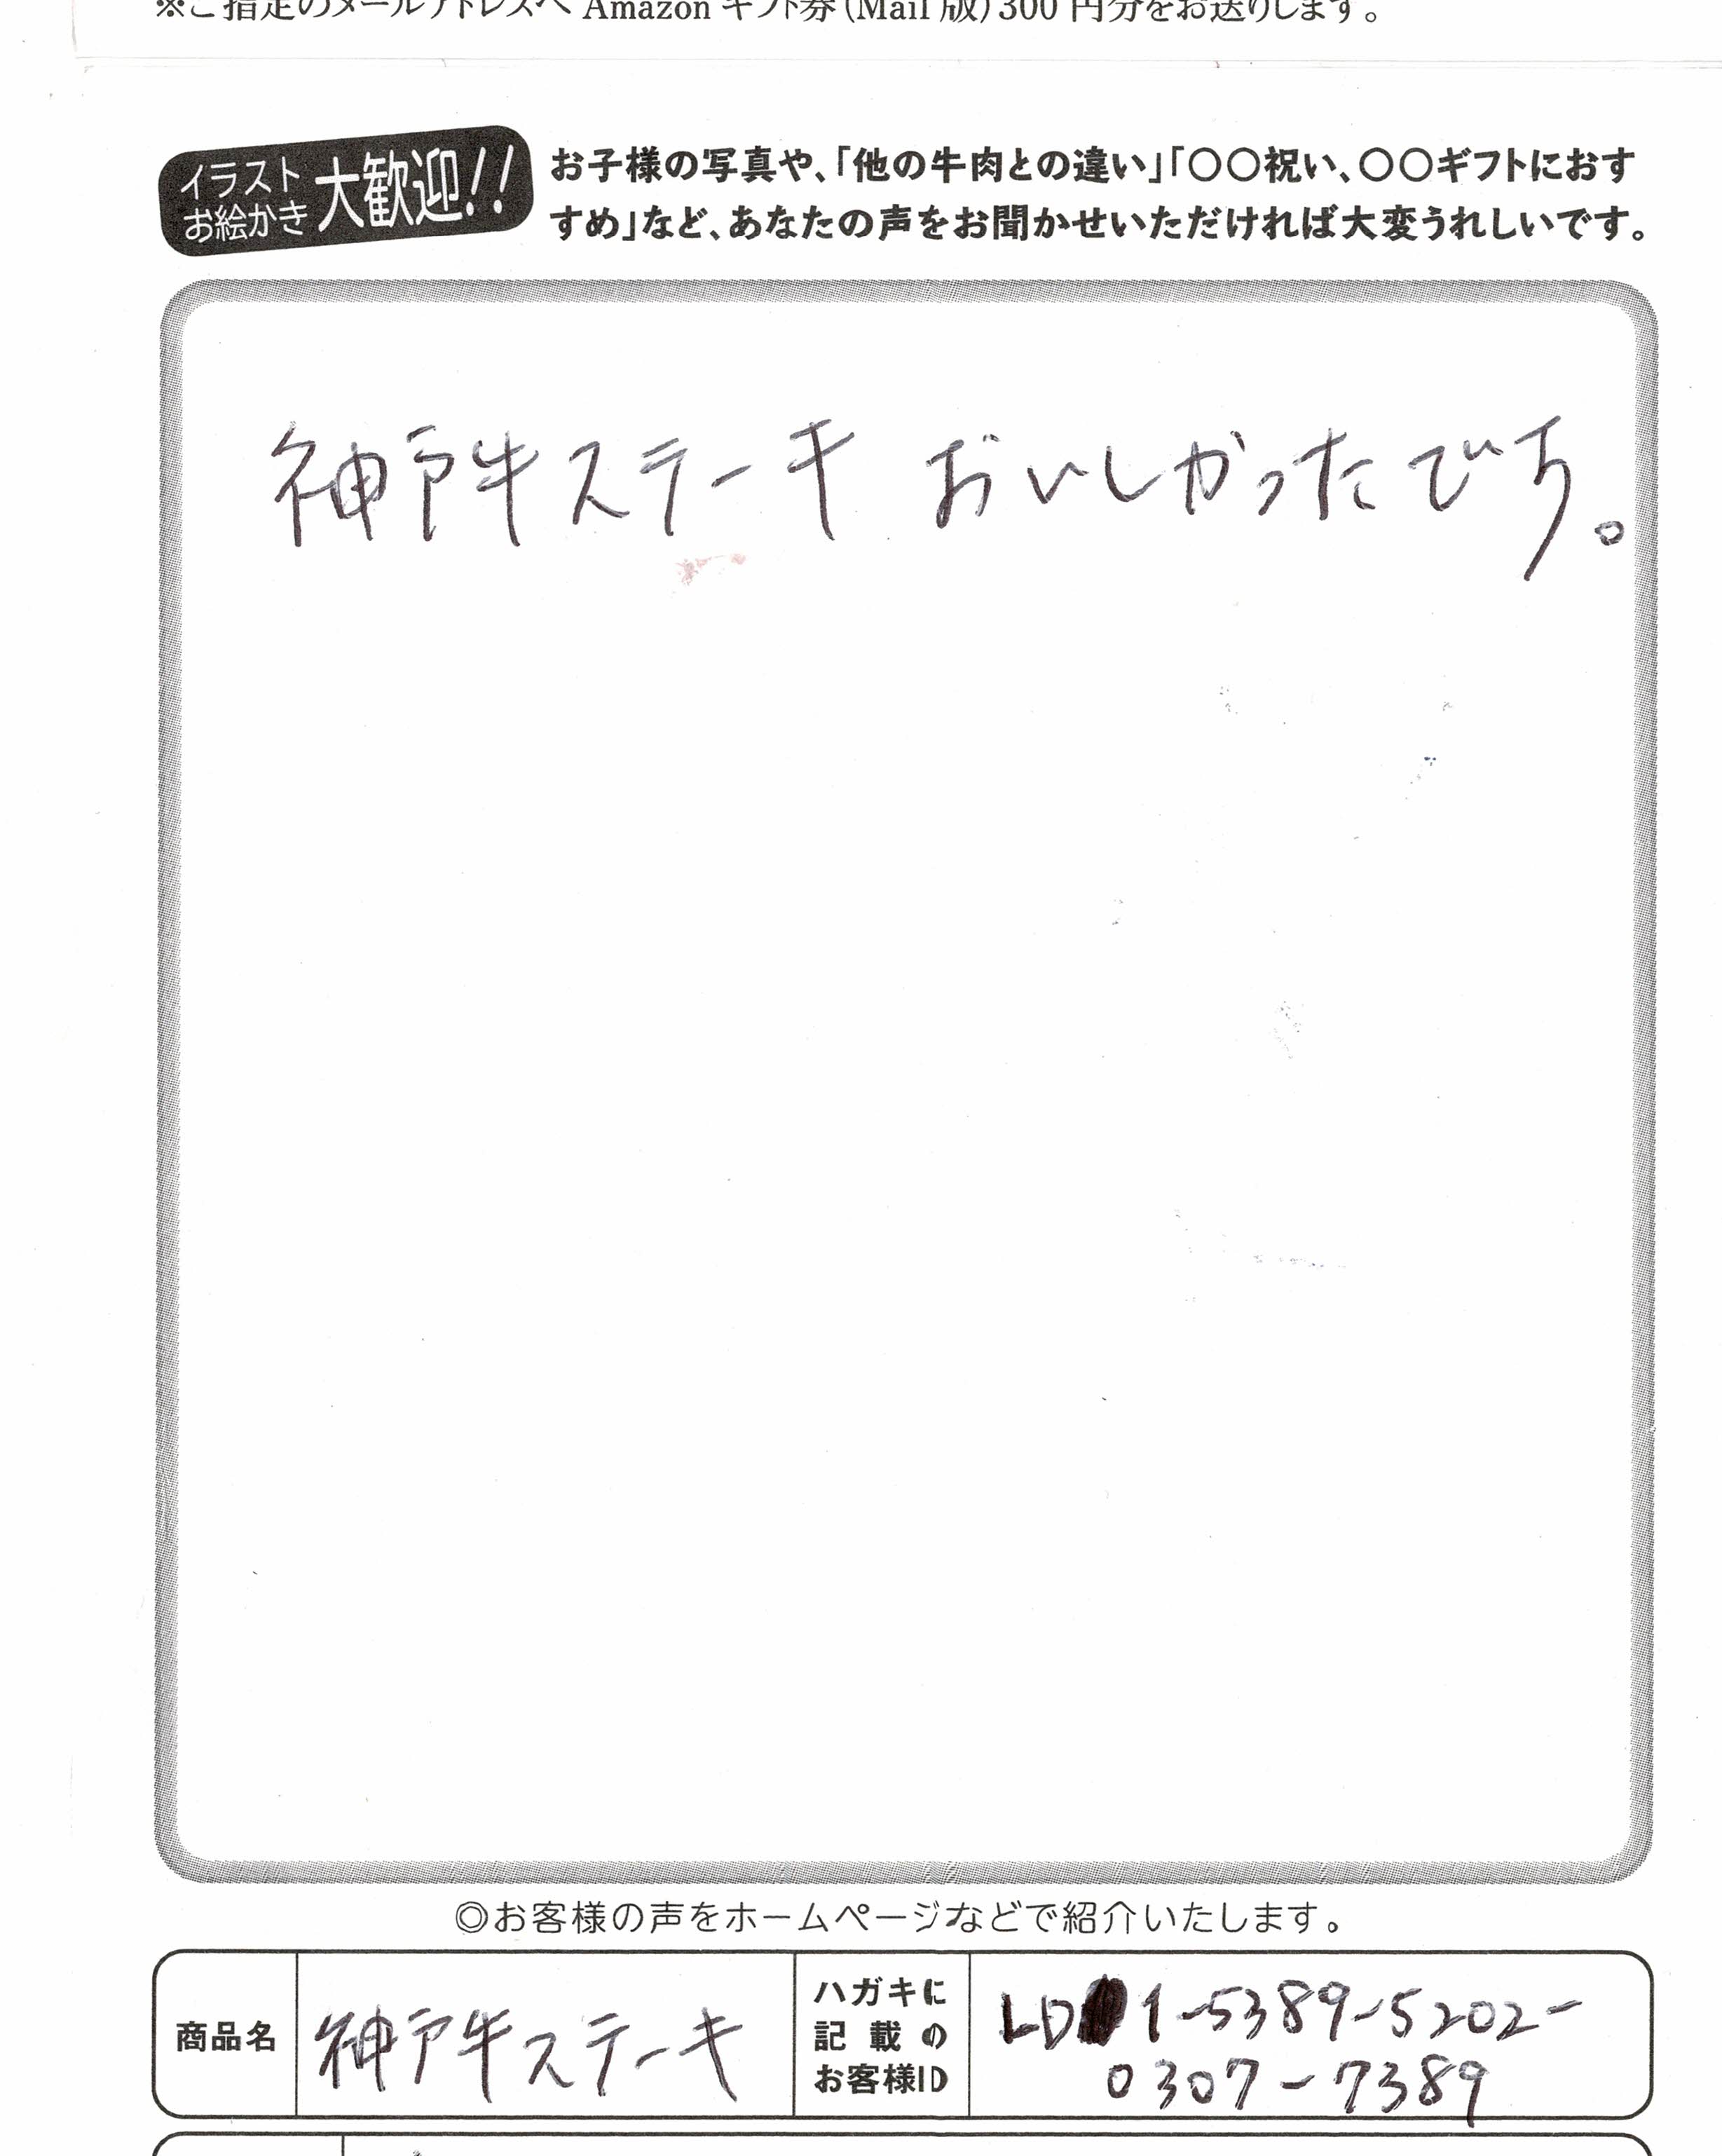 ※ご指定のメールアドレスへ Amazon ギフト券(Mail 版)300 円分をお送りします。
イラスト
お絵かき
大歓迎!!
お子様の写真や、「他の牛肉との違い」「〇〇祝い、〇〇ギフトにおす
すめ」など、あなたの声をお聞かせいただければ大変うれしいです。
神戸牛ステーキ おいしかったです。
◎お客様の声をホームページなどで紹介いたします。
商品名
神戸牛ステーキ
ハガキに
記載の
お客様ID
LD 1-5389-5202-
0307-7389